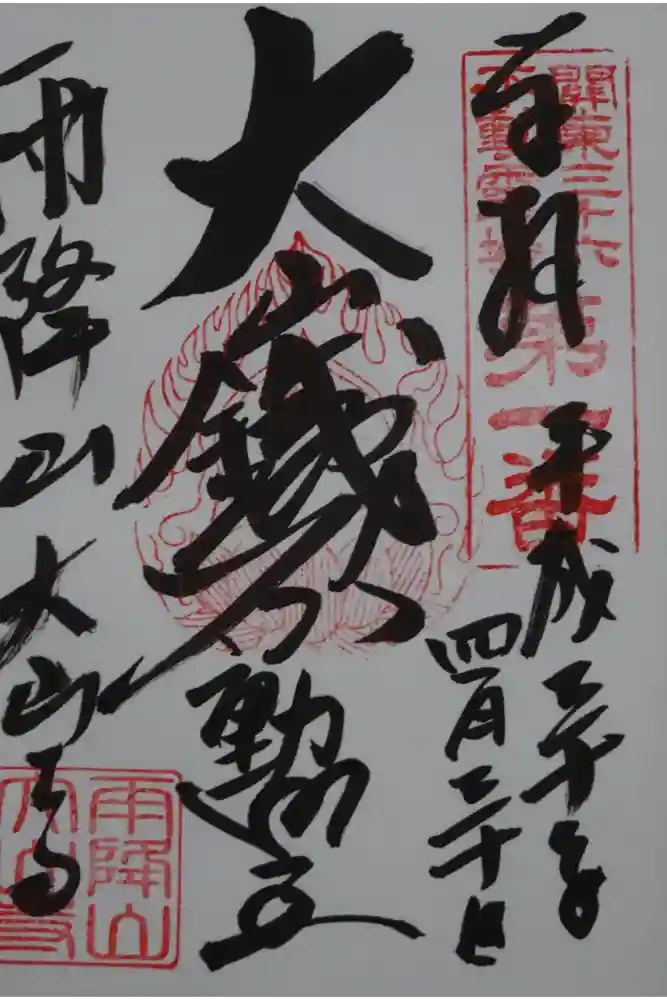 奉拝
平成二十年
四月二十日
關東三十六
不動霊場
第一番
大山鐵不動王
雨降山大山寺
雨降山
大山寺